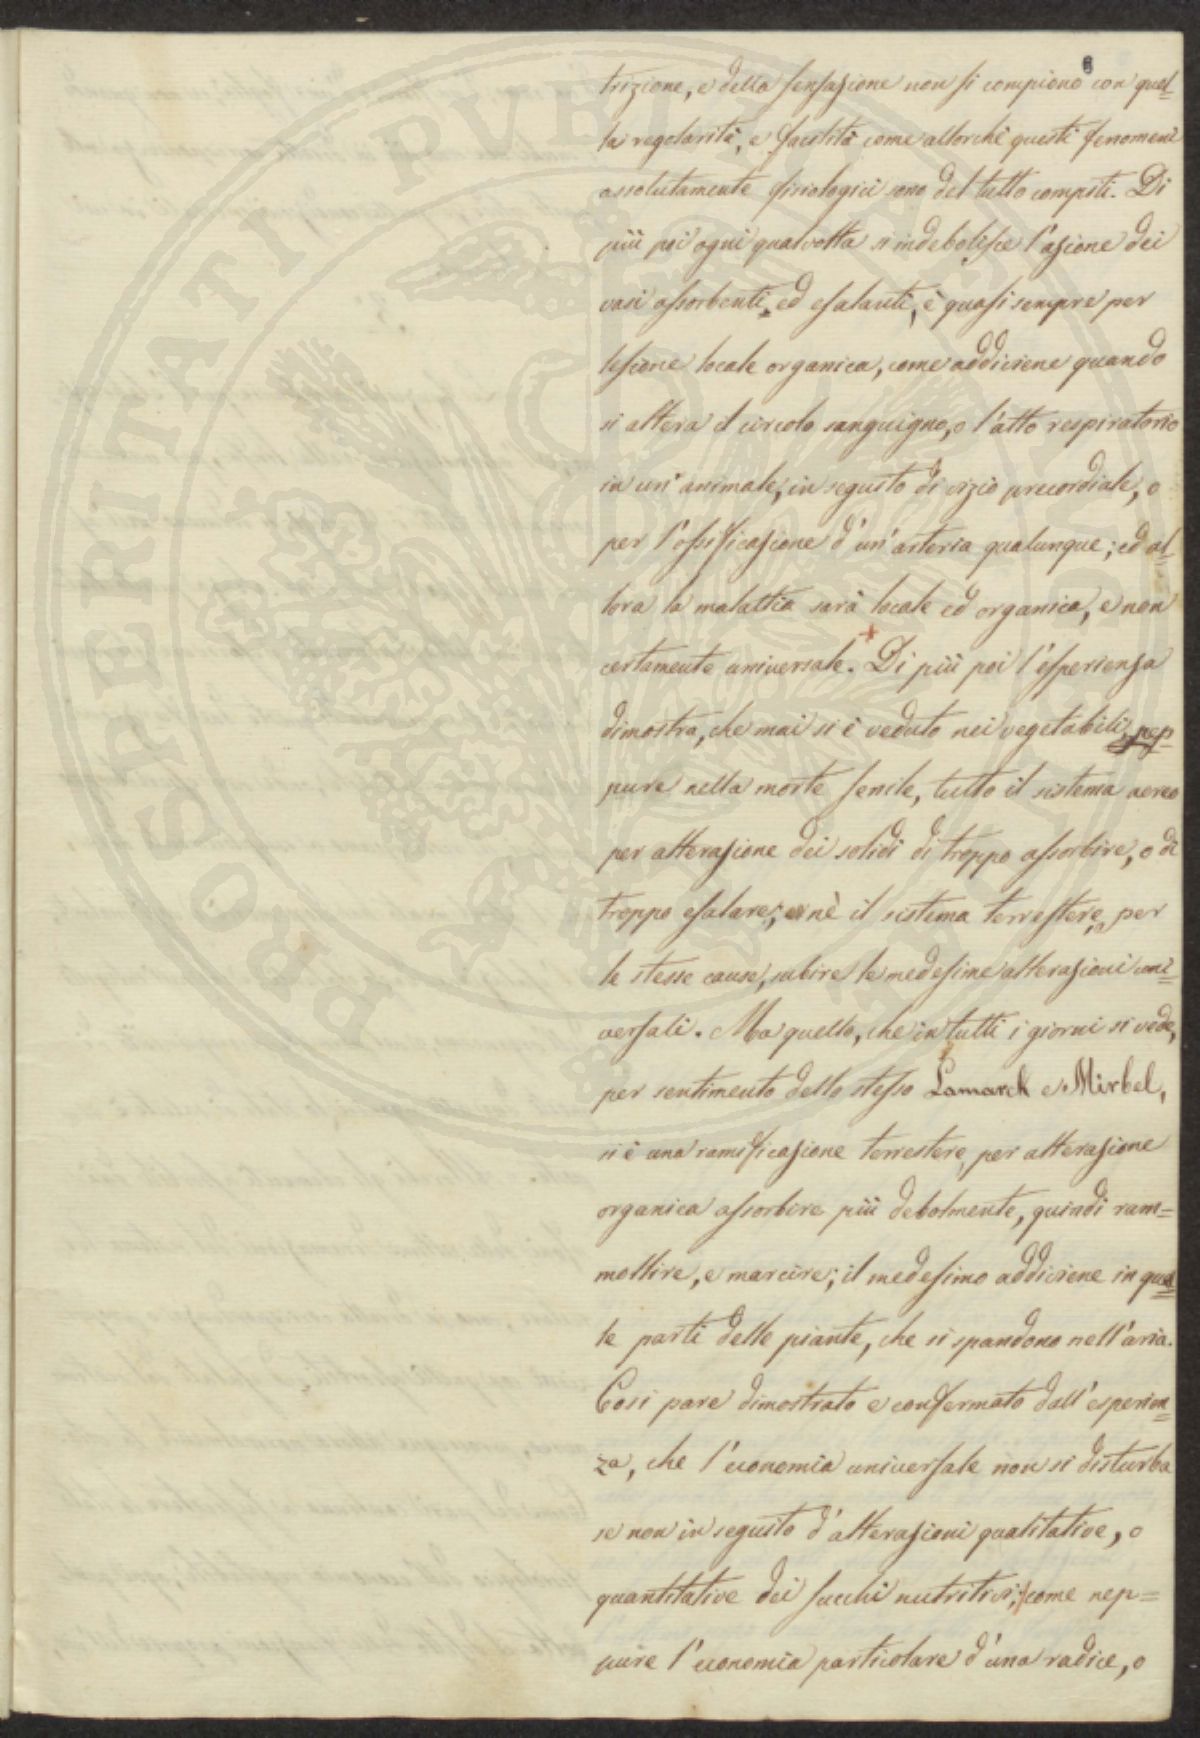 6
trizione, e della sensazione non si compiono con quel=
la regolarità, e facilità come allorchè questi fenomeni
assolutamente fisiologici sono del tutto compiti. Di
più poi ogni qualvolta si indebolisce l'azione dei
vasi assorbenti, ed esalanti, è quasi sempre per
lesione locale organica, come addiviene quando
si altera il circolo sanguigno, o l'atto respiratorio
in un' animale, in seguito di vizio precordiale, o
per l'ossificazione d'un' arteria qualunque; ed al=
lora la malattia sarà locale ed organica, e non
certamente universale. Di più poi l'esperienza
dimostra, che mai si è veduto nei vegetabili, nep=
pure nella morte senile, tutto il sistema aereo
per alterazione dei solidi di troppo assorbire, o di
troppo esalare; nè il sistema terrestere, per
le stesse cause, subire le medesime alterazioni uni=
versali. Ma quello, che in tutti i giorni si vede,
per sentimento dello stesso Lamarck e Mirbel,
si è una ramificazione terrestere, per alterazione
organica assorbire più debolmente, quindi ram=
mollire, e marcire; il medesimo addiviene in quel=
le parti delle piante, che si spandono nell'aria.
Così pare dimostrato e confermato dall'esperien=
za, che l'economia universale non si disturba
se non in seguito d'alterazioni qualitative, o
quantitative dei succhi nutritivi; come nep=
pure l'economia particolare d'una radice, o
PROSPERITATI PUBLICAE